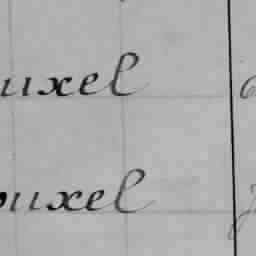 uxel
ouxel